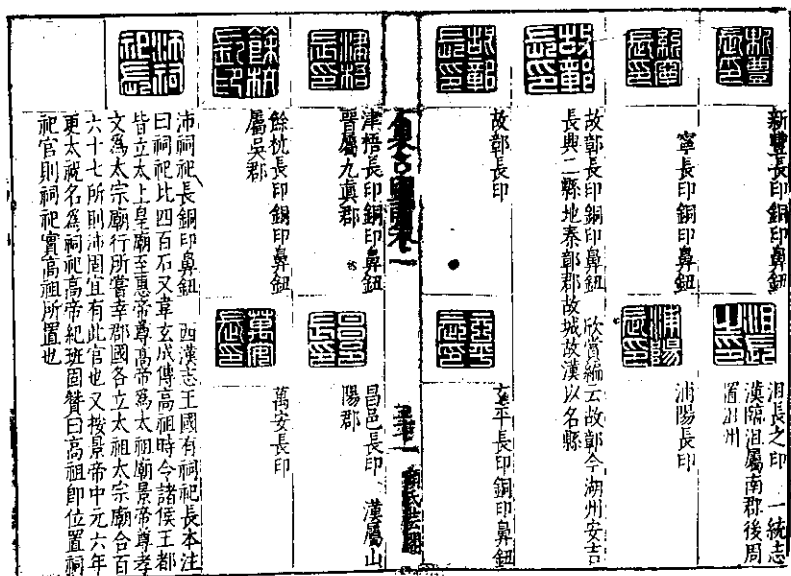 新豐長印
新豐長印銅印鼻鈕
沮長之印
沮長之印 一統志
漢臨沮屬南郡後周
置沮州
新寧長印
寧長印銅印鼻鈕
浦陽長印
浦陽長印
故鄣長印
故鄣長印銅印鼻鈕 欣賞編云故鄣今湖州安吉
長興二縣地秦鄣郡故城故漢以名縣
故鄣長印
故鄣長印
玄平長印
玄平長印銅印鼻鈕
集古印譜卷一
顧氏芸閣
津梧長印
津梧長印銅印鼻鈕
晉屬九真郡
昌邑長印
昌邑長印 漢屬山
陽郡
餘杭長印
餘杭長印銅印鼻鈕
屬吳郡
萬安長印
萬安長印
沛祠祀長
沛祠祀長銅印鼻鈕 西漢志王國有祠祀長本注
曰祠祀比四百石又韋玄成傳高祖時令諸侯王都
皆立太上皇廟至惠帝尊高帝為太祖廟景帝尊孝
文為太宗廟行所嘗幸郡國各立太祖太宗廟合百
六十七所則沛固宜有此官也又按景帝中元六年
更太祝名為祠祀高帝紀班固贊曰高祖即位置祠
祀官則祠祀實高祖所置也